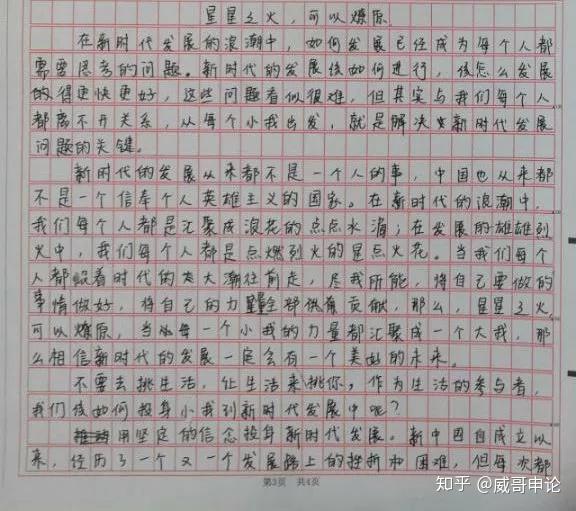 星星之火，可以燎原
在新时代发展的浪潮中，如何发展已经成为每个人都
需要思考的问题。新时代的发展该如何进行，该怎么发展
的得更快更好，这些问题看似很难，但其实与我们每个人
都离不开关系，从每个小我出发，就是解决新时代发展
问题的关键。
新时代的发展从来都不是一个人的事，中国也从来都
不是一个信奉个人英雄主义的国家。在新时代的浪潮中，
我们每个人都是汇聚成浪花的点点水滴；在发展的雄雄烈
火中，我们每个人都是点燃烈火的星点火花。当我们每个
人都跟着时代的大潮往前走，尽我所能，将自己要做的
事情做好，将自己的力量全部贡献，那么，星星之火
可以燎原，当每一个小我的力量都汇聚成一个大我，那
么相信新时代的发展一定会有一个美好的未来。
不要去挑生活，让生活来挑你，作为生活的参与者，
我们该如何投身小我到新时代发展中呢？
用坚定的信念投身新时代发展。新中国自成立以
来，经历了一个又一个发展路上的挫折和困难，但每次都
第3页 共4页
知乎 @威哥申论